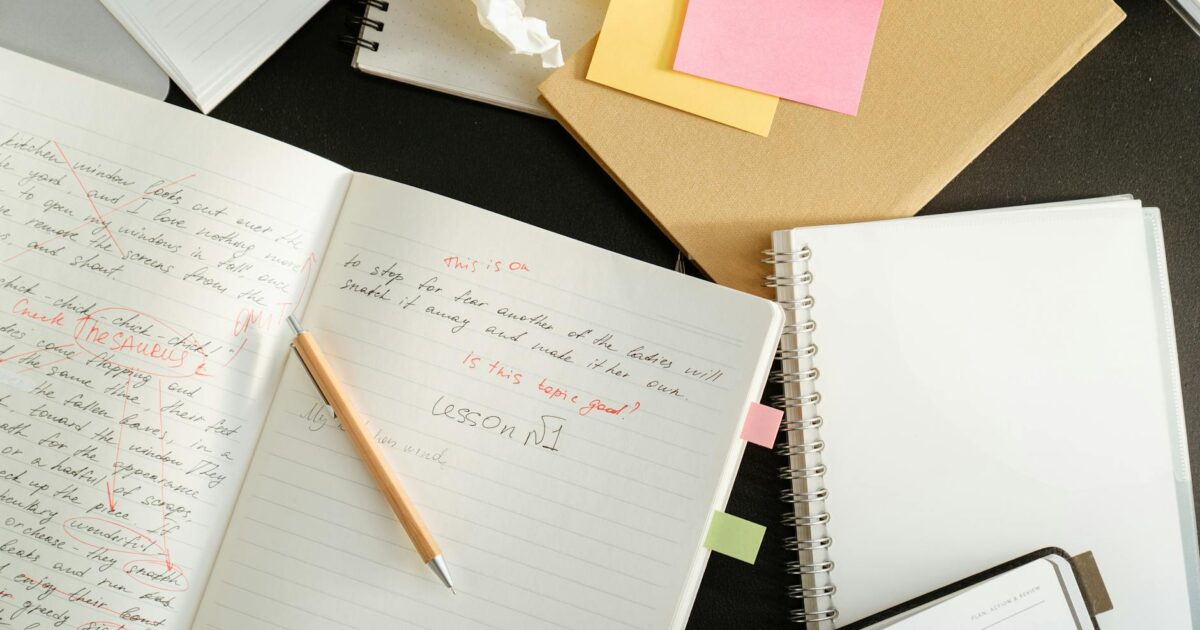 kitchen window looks out over the
yard and I love nothing more
to open my windows in fall, once
remove the screens from the
and shout.
chick-chick, chick-chick!"
OMIT
Check Thesaurus
come flapping and
the same time, their feet
the fallen leaves, in a
toward the window. They
for the appearance
or a handful of scraps,
up the piece. If
wonderful
or cheese - they snatch
beaks and run and
enjoy their
greedy
This is on
to stop for fear another of the ladies will
snatch it away and make it her own.
Is this topic good?
Lesson №1
My
hens
PLAN, ACTION & REVIEW